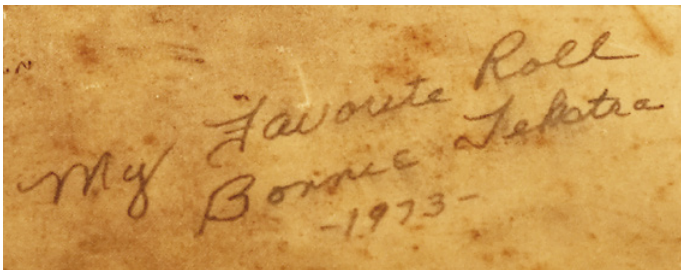 My Favorite Roll
Bonnie Tekstra
-1973-